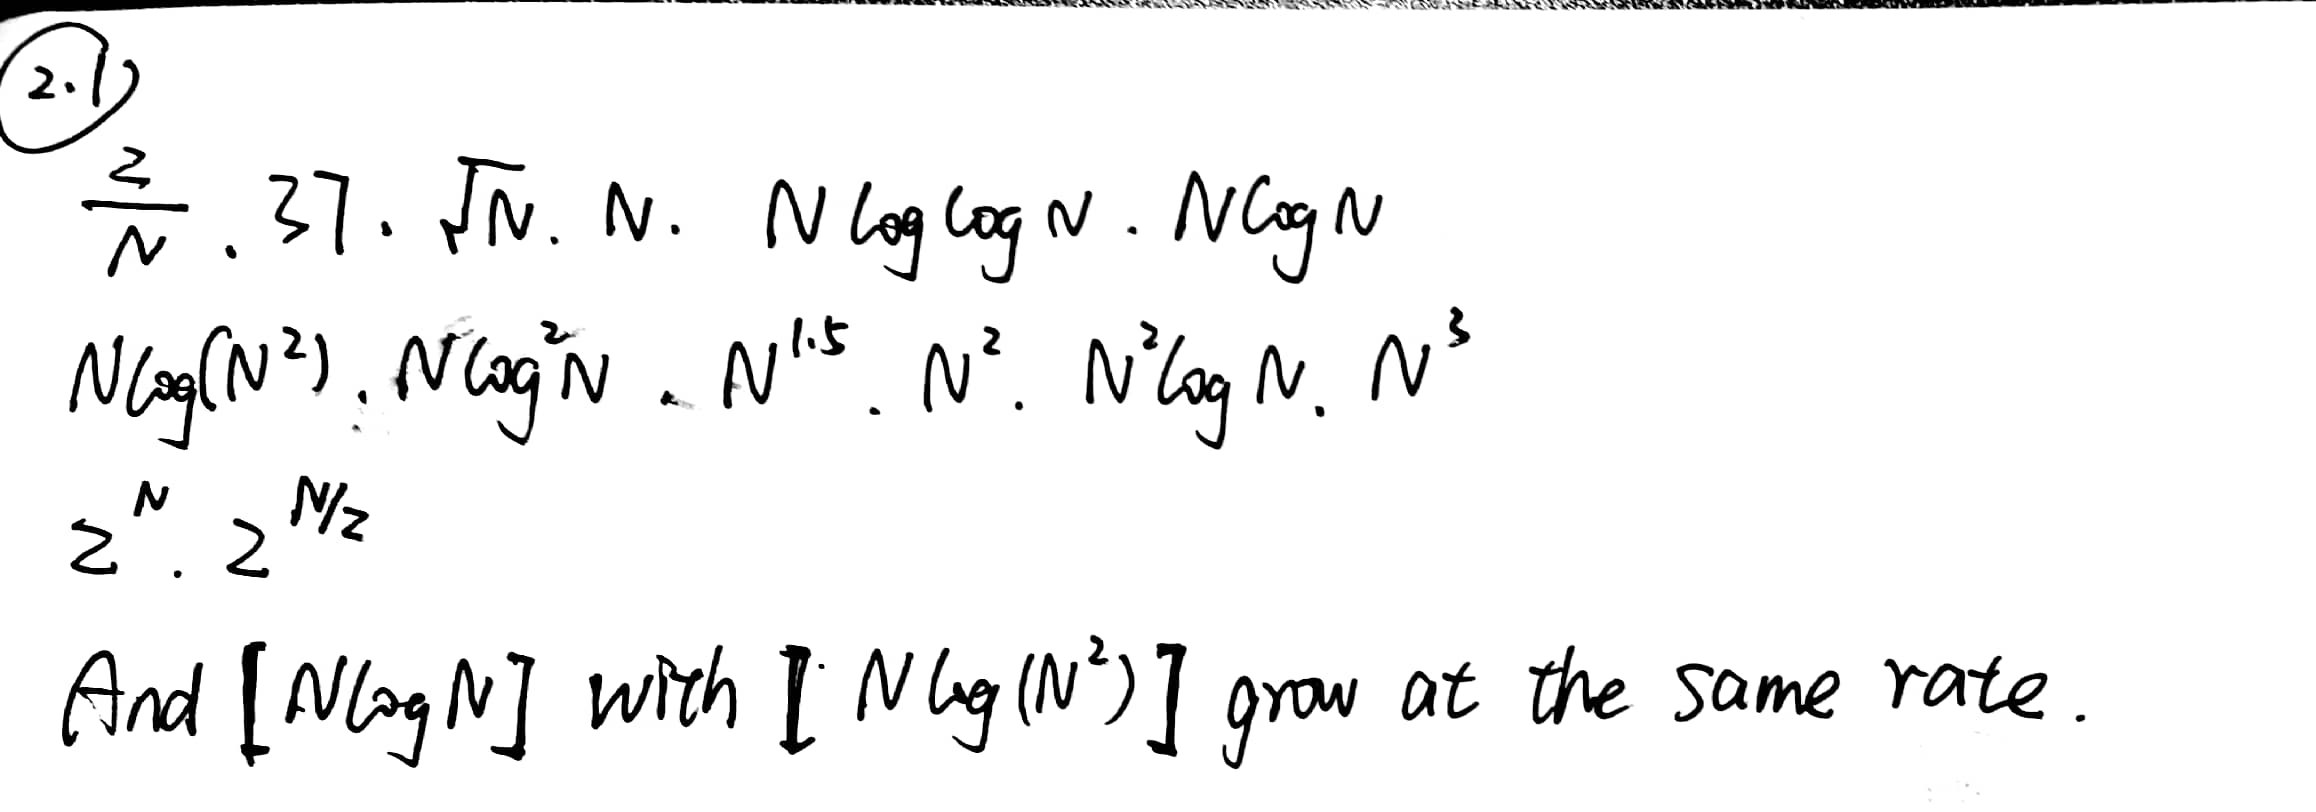 2.1)
2/N . 37 . √N . N . N log log N . N log N
N log(N²) . N log²N . N^1.5 . N² . N² log N . N³
2^N . 2^N/2
And [N log N] with [N log (N²)] grow at the same rate.